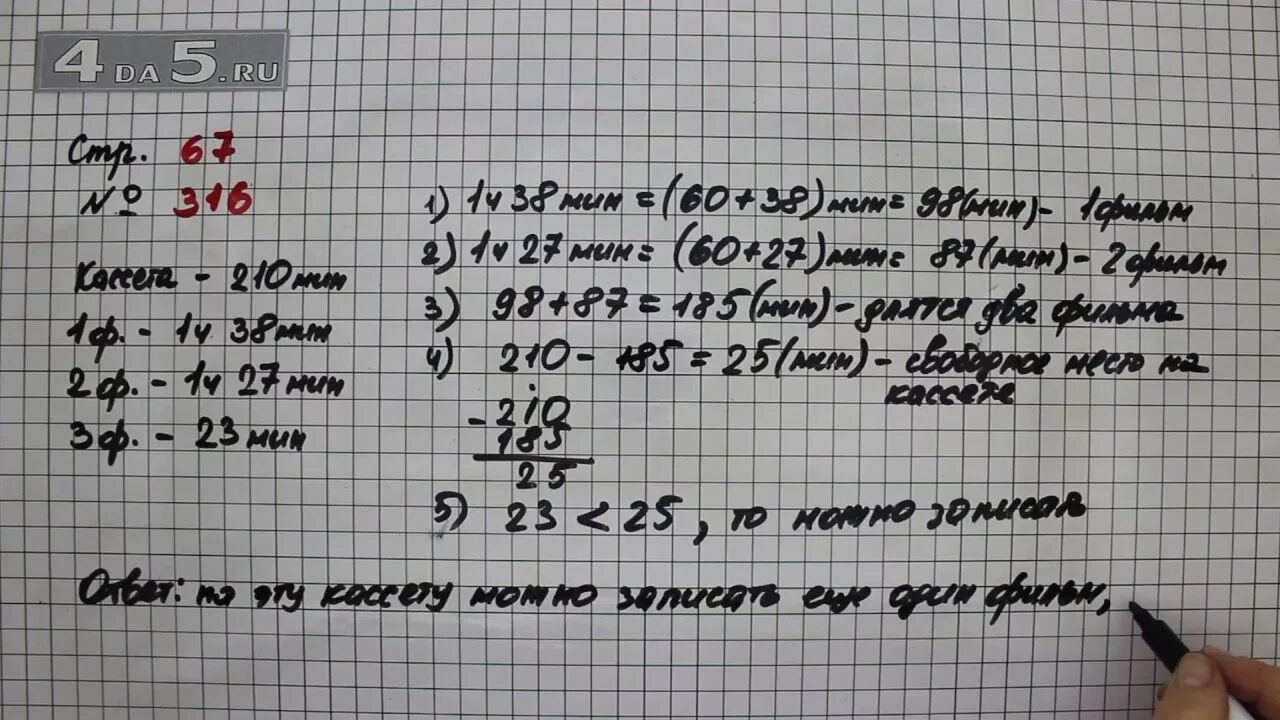 4DA5.RU
Стр. 67
№ 316
Кассета - 210 мин
1ф. - 1ч 38 мин
2ф. - 1ч 27 мин
3ф. - 23 мин
1) 1ч 38 мин = (60+38) мин = 98 (мин) - 1 фильм
2) 1ч 27 мин = (60+27) мин = 87 (мин) - 2 фильм
3) 98 + 87 = 185 (мин) - длятся два фильма
4) 210 - 185 = 25 (мин) - свободное место на
кассете
- 210
185
25
5) 23 < 25, то можно записать
Ответ: на эту кассету можно записать еще один фильм,